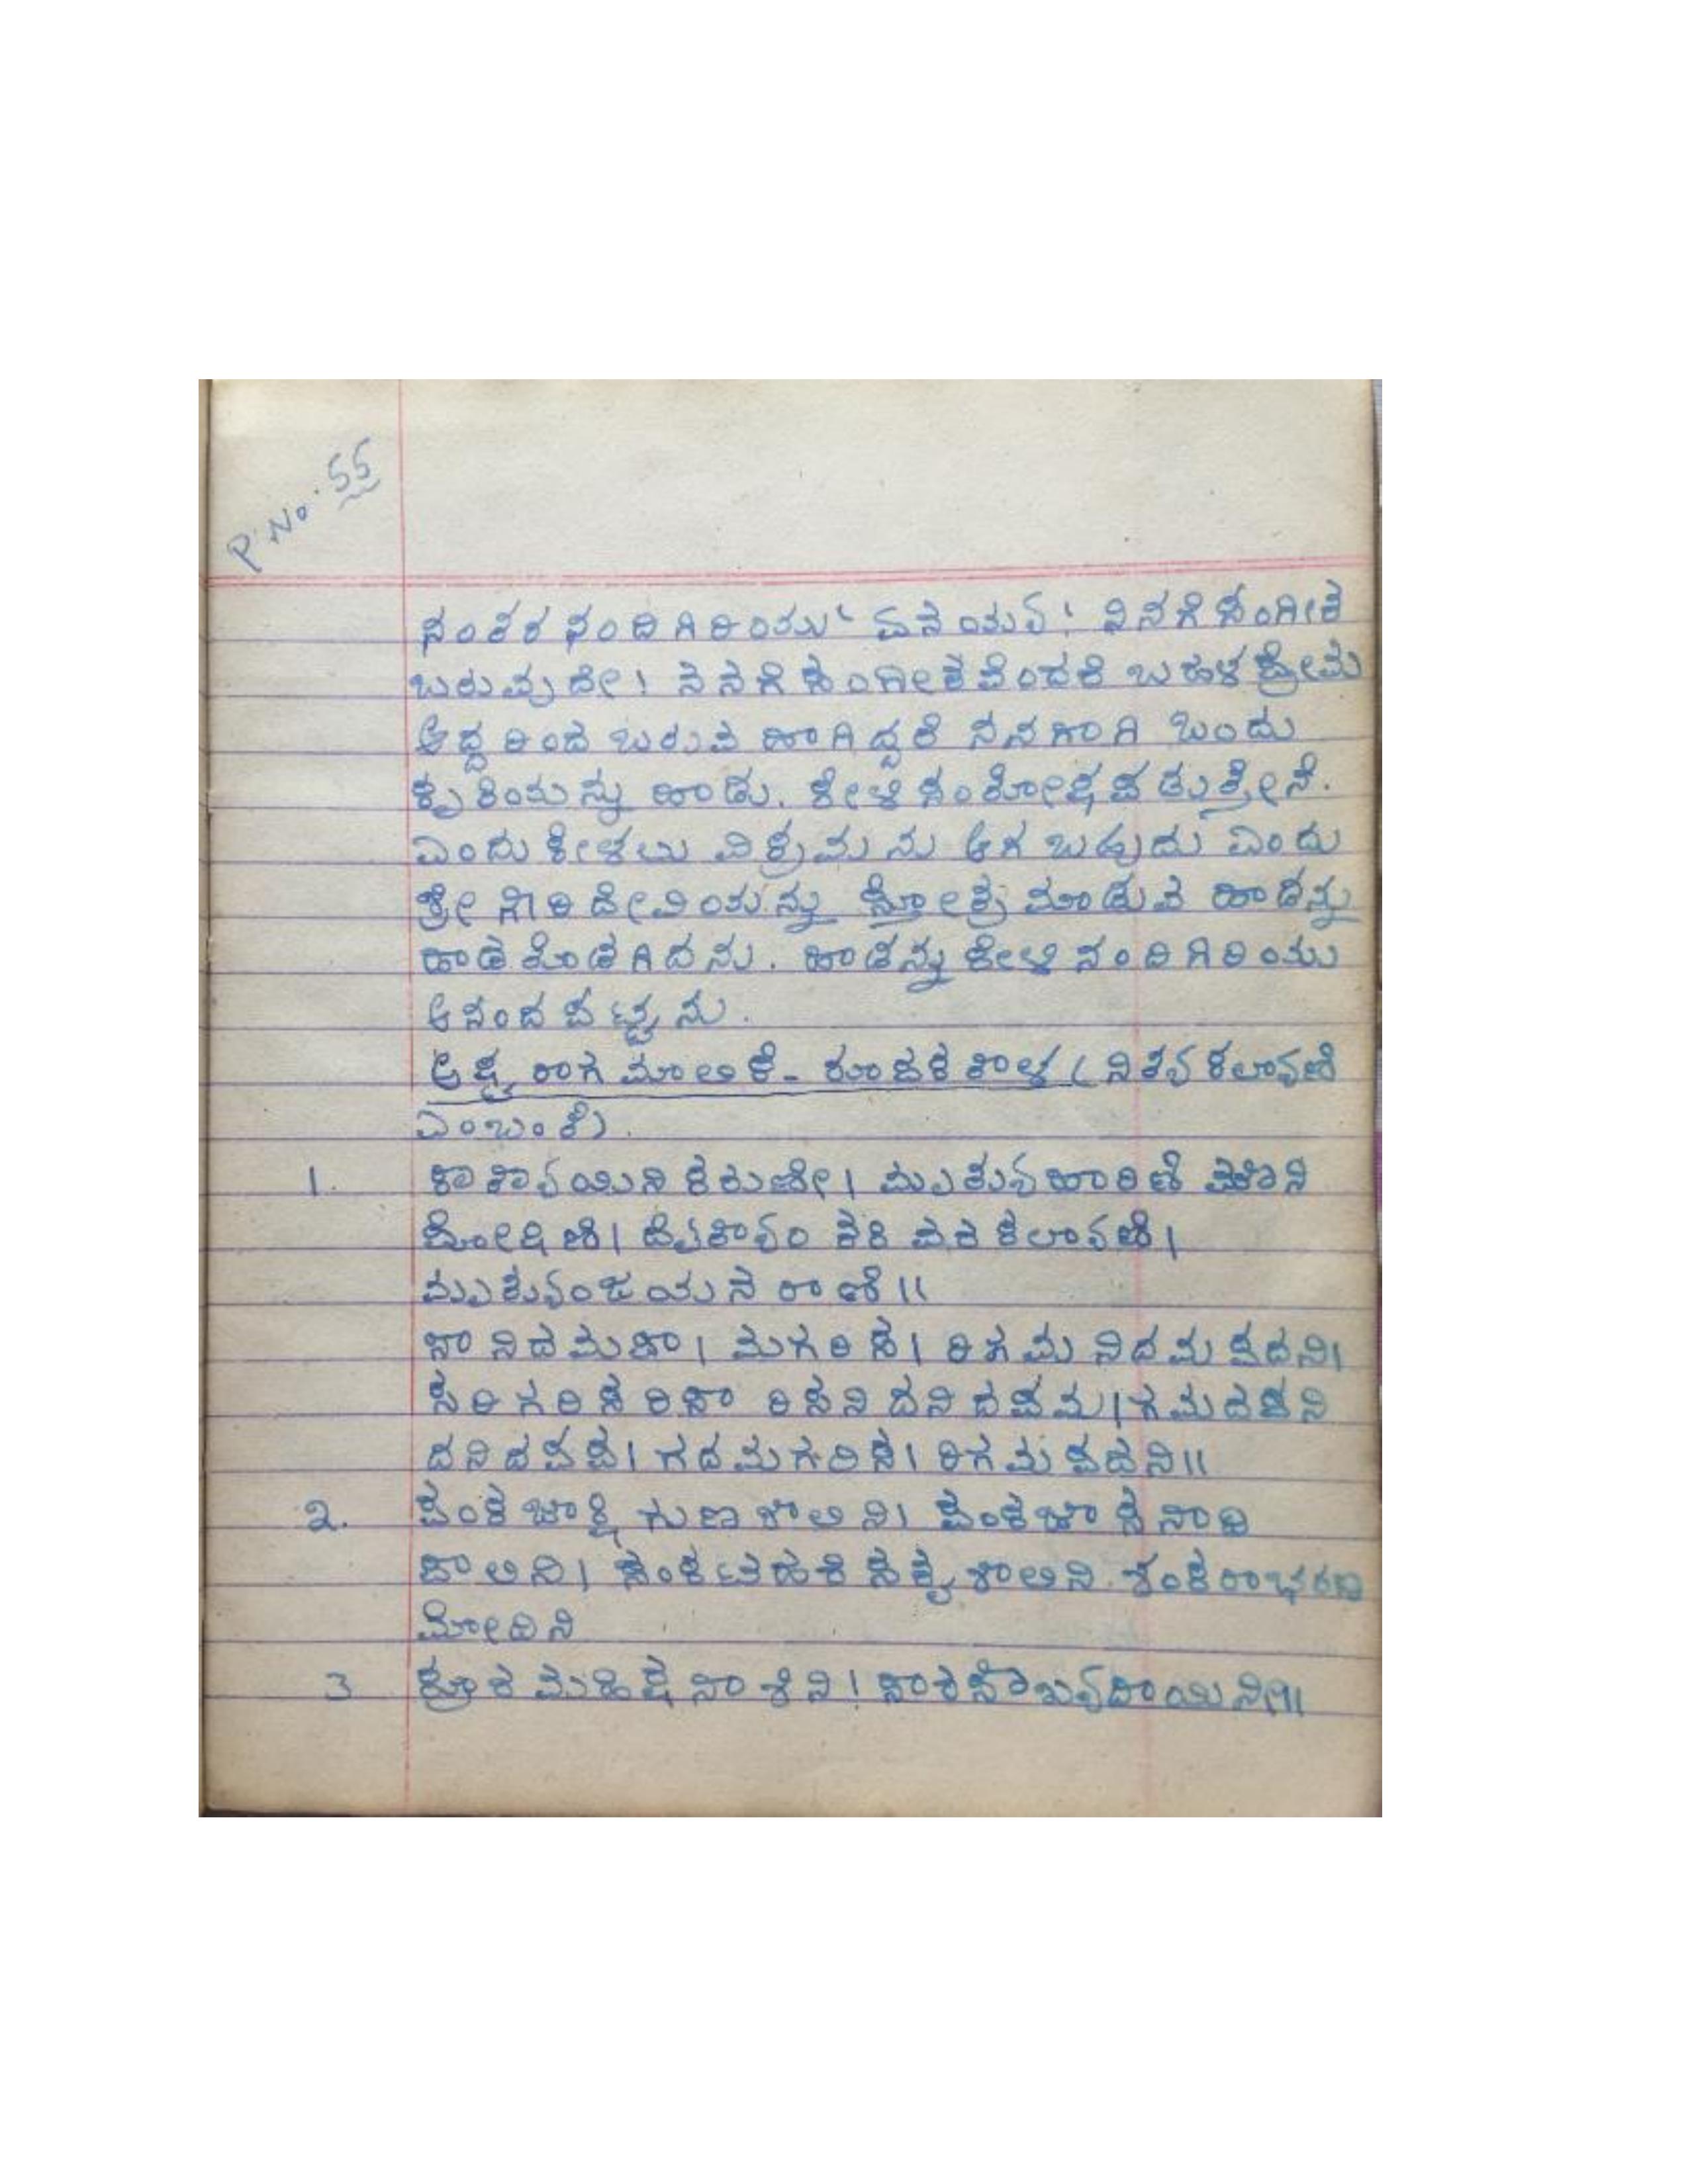 P. No. 55
ನಂತರ ನಂದಿಗಿರಿಯು ನಿನಗೆ ಸಂಗೀತ
ಬರುವುದೇ! ನನಗೆ ಸಂಗೀತವೆಂದರೆ ಬಹಳ ಪ್ರೇಮ
ಆದ್ದರಿಂದ ಬರುವ ಹಾಗಿದ್ದರೆ ನನಗಾಗಿ ಒಂದು
ಕೃತಿಯನ್ನು ಹಾಡು. ಕೇಳಿ ಸಂತೋಷಪಡುತ್ತೇನೆ.
ಎಂದು ಕೇಳಲು ವಿಕ್ರಮನು ಆಗಬಹುದು ಎಂದು
ಶ್ರೀ ಗೌರಿದೇವಿಯನ್ನು ಸ್ತೋತ್ರ ಮಾಡುವ ಹಾಡನ್ನು
ಹಾಡತೊಡಗಿದನು. ಹಾಡನ್ನು ಕೇಳಿ ನಂದಿಗಿರಿಯು
ಆನಂದಪಟ್ಟನು.
ಅಷ್ಟ ರಾಗ ಮಾಲಿಕೆ - ರೂಪಕ ತಾಳ (ನಿತ್ಯ ಕಲ್ಯಾಣಿ
ಎಂಬಂತೆ).
1. ಕಾತ್ಯಾಯಿನಿ ಕರುಣೀ। ಮೃತ್ಯುಹಾರಿಣಿ ಮೌನಿ
ಪೋಷಿಣಿ। ದೈತ್ಯಾಂತಕಿ ವರ ಕಲ್ಯಾಣಿ।
ಮೃತ್ಯುಂಜಯನ ರಾಣಿ॥
ಸಾ ನಿದಮಪಾ। ಮಗರಿಸ। ರಿಗಮ ನಿದಮ ಪದನಿ।
ಸರಿಗರಿಸ ರಿಸಾ ರಿಸನಿ ದನಿ ದಪಮ। ಗಮಪದನಿ
ದನಿದಪಪ। ಗದಮಗರಿಸ। ರಿಗಮಪದನಿ॥
೨. ಪಂಕಜಾಕ್ಷಿ ಗುಣಶಾಲಿನಿ। ಪಂಕಜಾಸನಾದಿ
ಪಾಲಿನಿ। ಸಂಕಟಹರೆ ಸತ್ಯಶಾಲಿನಿ ಶಂಕರಾಭರಣ
ಮೋದಿನಿ
3 ಕ್ರೂರ ಮಹಿಷ ನಾಶಿನಿ। ಸಾರಸೌಖ್ಯದಾಯಿನೀ॥